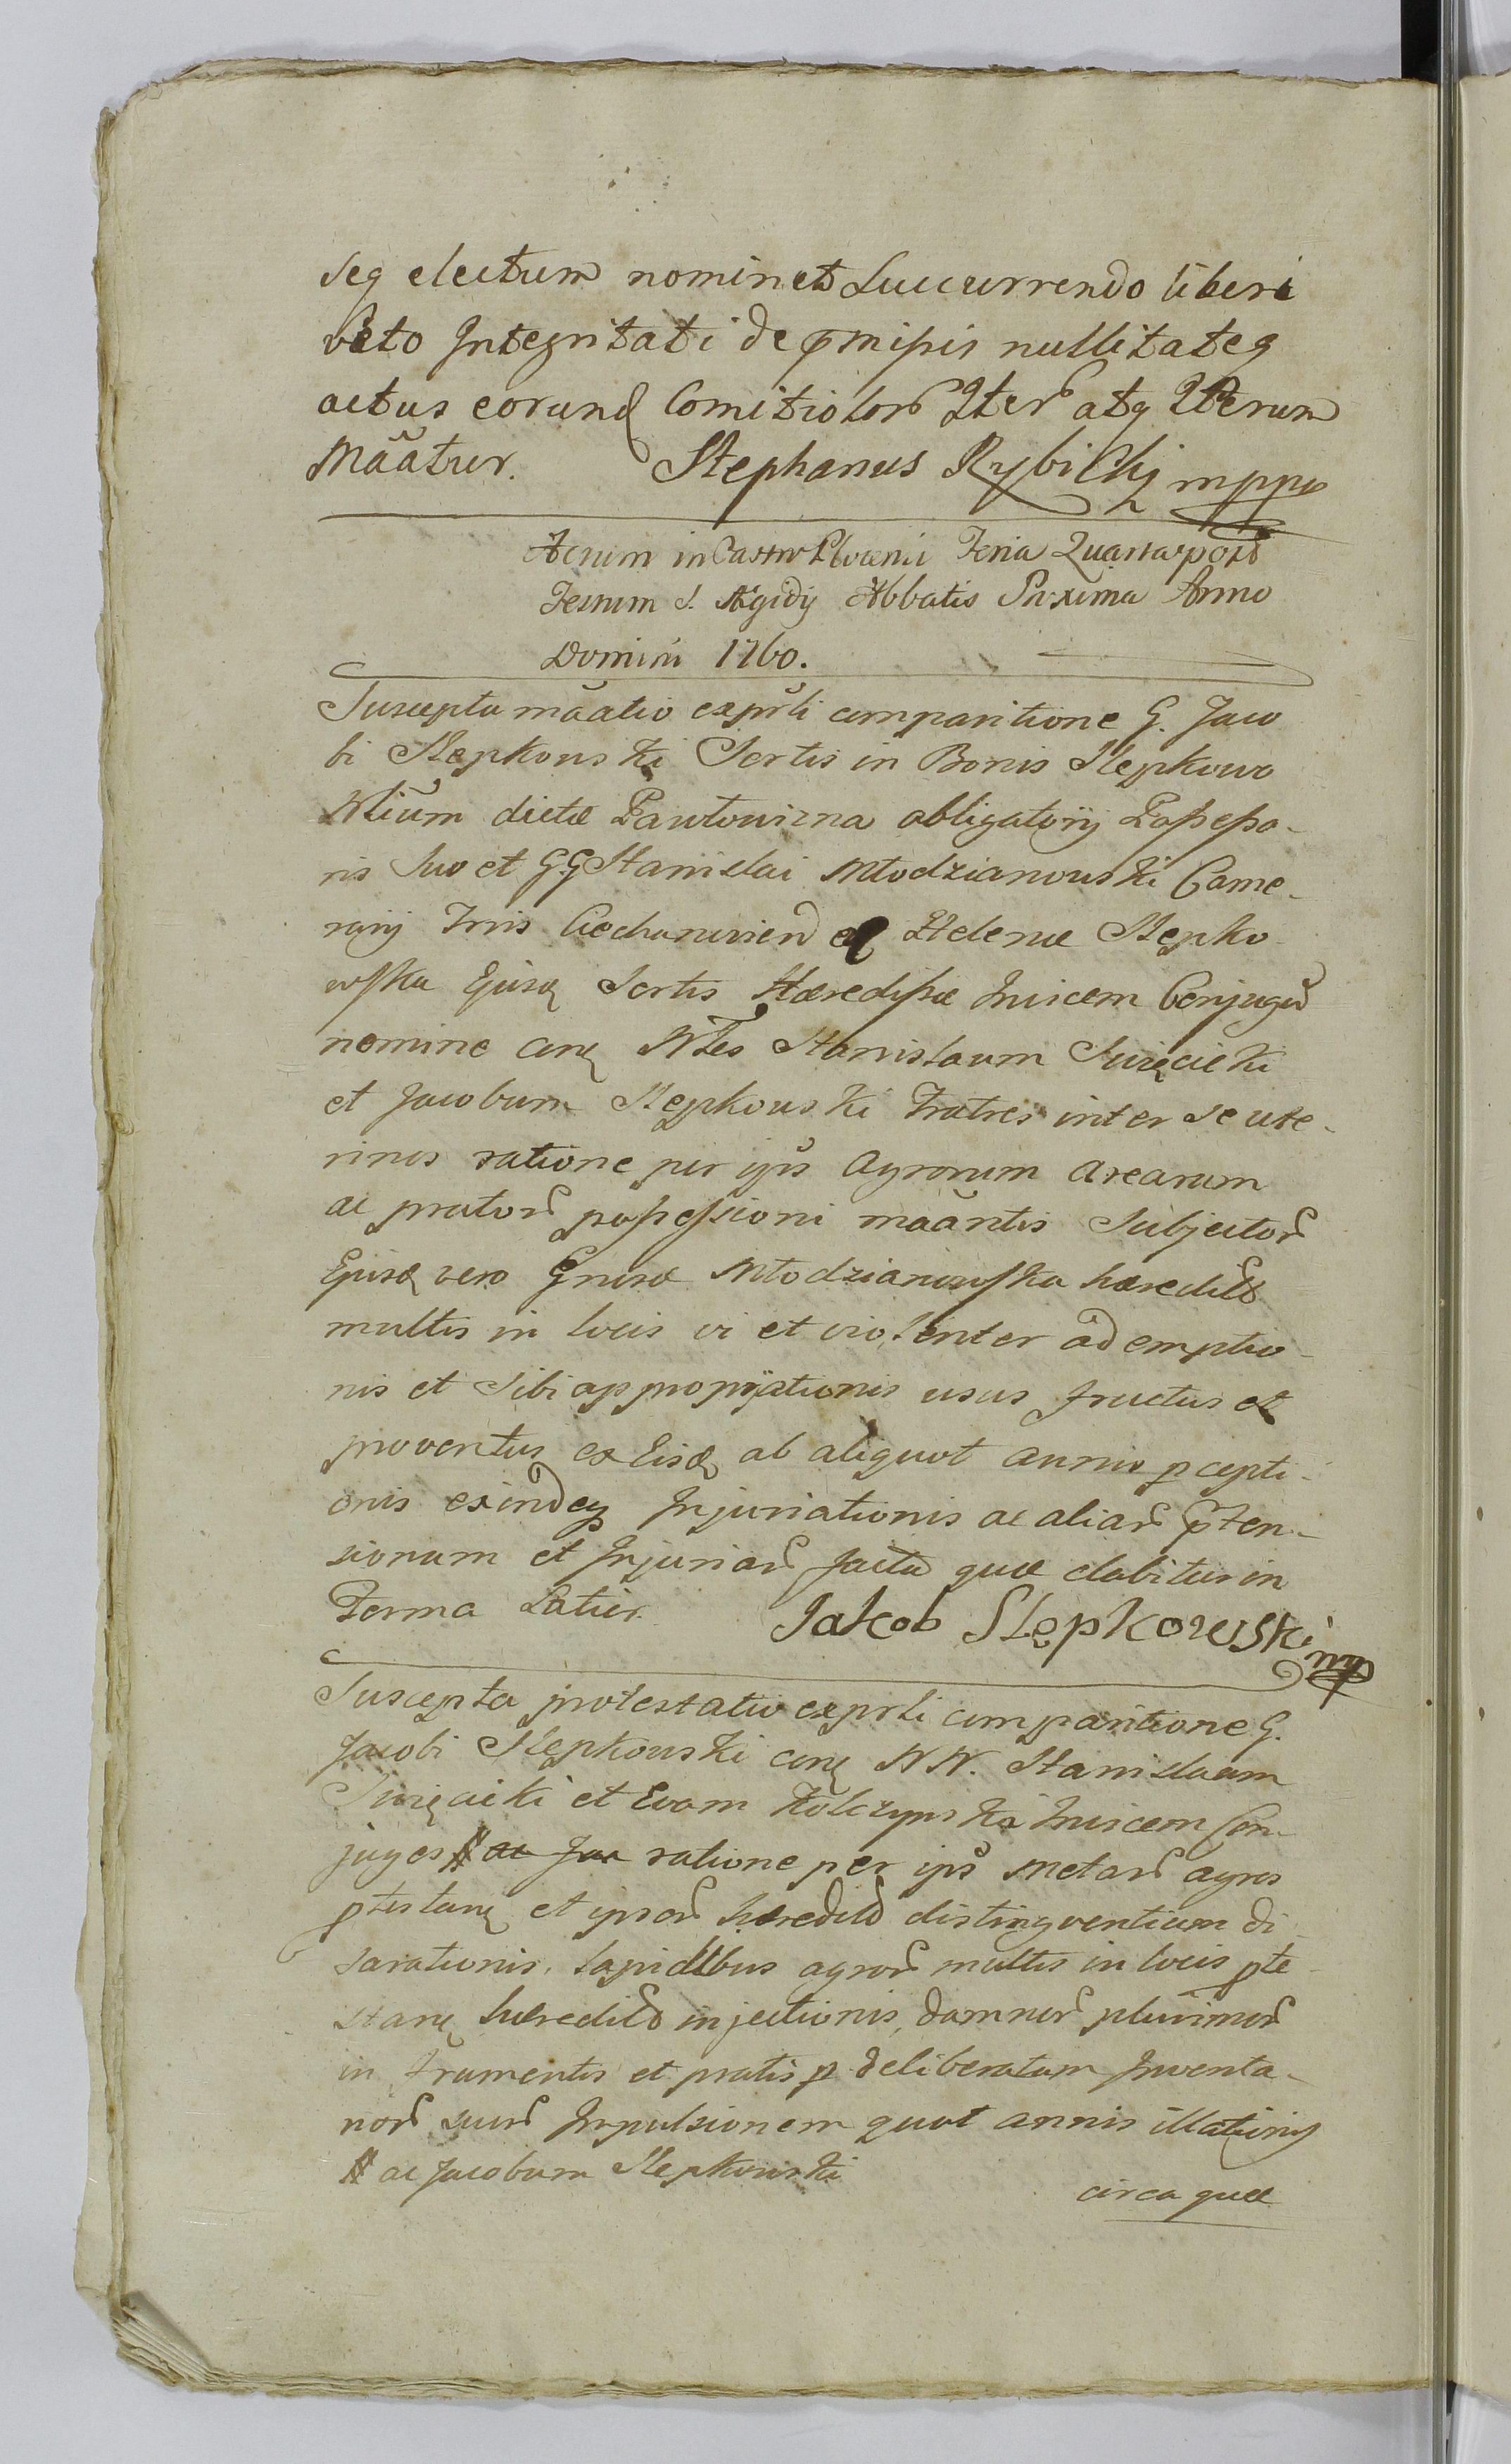 seq electum nominet Succurrendo liberi
veto Integritati de pmissis nullitateq
actus eorund Comitiolor Iter atq Iterum
Mãatur. Stephanus Rybicki mppa
Actum in Castro Plocensi Feria Quarta post
Festum S. Ægidij Abbatis Proxima Anno
Domini 1760.
Suscepta mãatio ex psli comparitione G. Jaco
bi Stępkowski Sortis in Bonis Stępkowo
Nlium dictæ Pawłowizna obligatorij Possesso-
ris Suo et GG Stanislai Młodzianowski Came-
rarij Trris Ciechanovien et Helenæ Stępko
wska Ejusq Sortis Hæredissæ Invicem Conjugũ
nomine cnq Nles Stanislaum Swięcicki
et Jacobum Stępkowski Fratres inter se ute-
rinos ratione per ipõs Agrorum Arearum
ac prator possessioni mãantis Subjector
Ejusq vero Gnrosæ Młodzianowska hæredit
multis in locis vi et violenter ademptio-
nis et Sibi appropriationis usus fructus et
proventus ex Eisd ab aliquot annis pcepti-
onis exindeq Injuriationis ac aliar pten-
sionum et Injuriar facta quæ dabitur in
Forma Latior. Jakob Stępkowski mp
Suscepta protestatio ex psli comparitione G.
Jacobi Stępkowski cnq NN. Stanislaum
Swięcicki et Evam Kolczynska Invicem Con-
juges # ac Jac ratione per ipõs Metar agros
ptestanq et ipsor hæredit distingventium di
sarationis, lapidibus agror multis in locis pte
stanq hæredit injectionis, damnor plurimor
in Frumentis et pratis p deliberatam Inventa-
rior suor Impulsionem quot annis illationis
# ac Jacobum Stępkowski
circa quæ